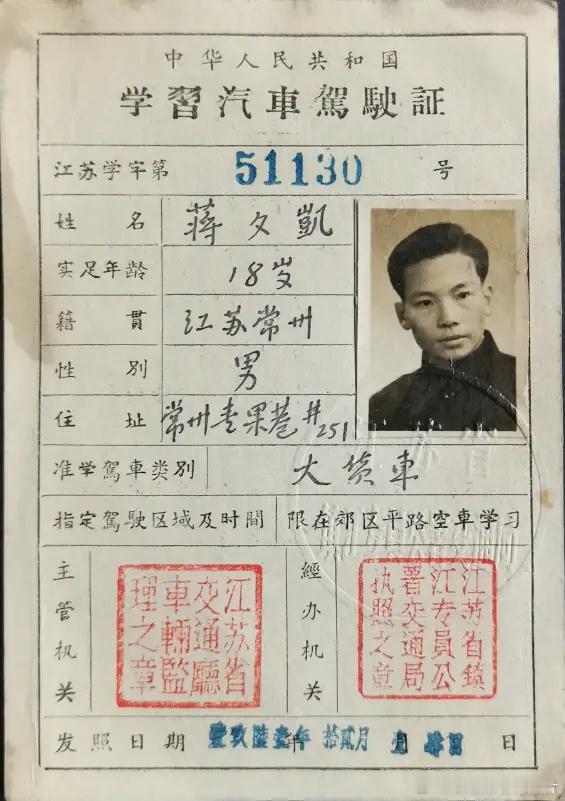 中华人民共和国
学習汽車駕駛証
江苏学字第 51130 号
姓名 蒋夕凱
实足年龄 18岁
籍貫 江苏常州
性别 男
住址 常州青果巷#251
准学駕車类別 大货車
指定駕駛区域及时間 限在郊区平路空車学习
主管机关 江苏省交通廳車輛監理之章
經办机关 江苏省鎮江专員公署交通局执照之章
发照日期 壹玖陸壹年 拾貳月 日